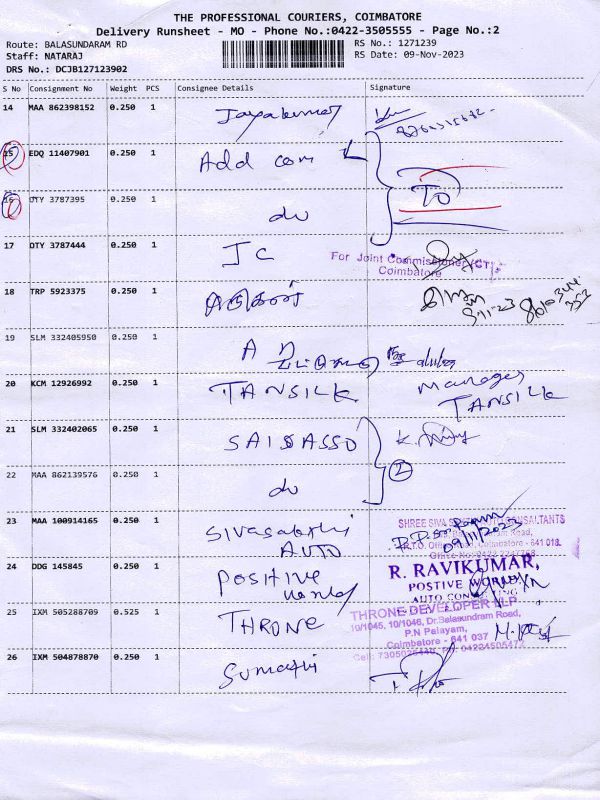 THE PROFESSIONAL COURIERS, COIMBATORE
Delivery Runsheet - MO - Phone No.:0422-3505555 - Page No.:2
Route: BALASUNDARAM RD
RS No.: 1271239
Staff: NATARAJ
RS Date: 09-Nov-2023
DRS No.: DCJB127123902
S No Consignment No Weight PCS Consignee Details Signature
14 MAA 862398152 0.250 1 Jayakumar
15 EDQ 11407901 0.250 1 Add com
16 OTY 3787395 0.250 1 do TO
17 OTY 3787444 0.250 1 JC
For Joint Commissioner (CT)
Coimbatore
18 TRP 5923375 0.250 1
19 SLM 332405950 0.250 1
20 KCM 12926992 0.250 1 TANSILK Manager
TANSILK
21 SLM 332402065 0.250 1 SAIDASSO
22 MAA 862139576 0.250 1 do 2
23 MAA 100914165 0.250 1 Sivasakthi
AUTO
SHREE SIVA CONSULTANTS
Coimbatore - 641 018.
09/11/2023
24 DDG 145845 0.250 1 Positive
R. RAVIKUMAR,
POSTIVE WORLD
AUTO CONSULTING
25 IXM 505288709 0.525 1 THRONE
THRONE DEVELOPER LLP
10/1045, 10/1046, Dr.Balasundram Road,
P.N Palayam,
Coimbatore - 641 037
26 IXM 504878870 0.250 1 Sumathi